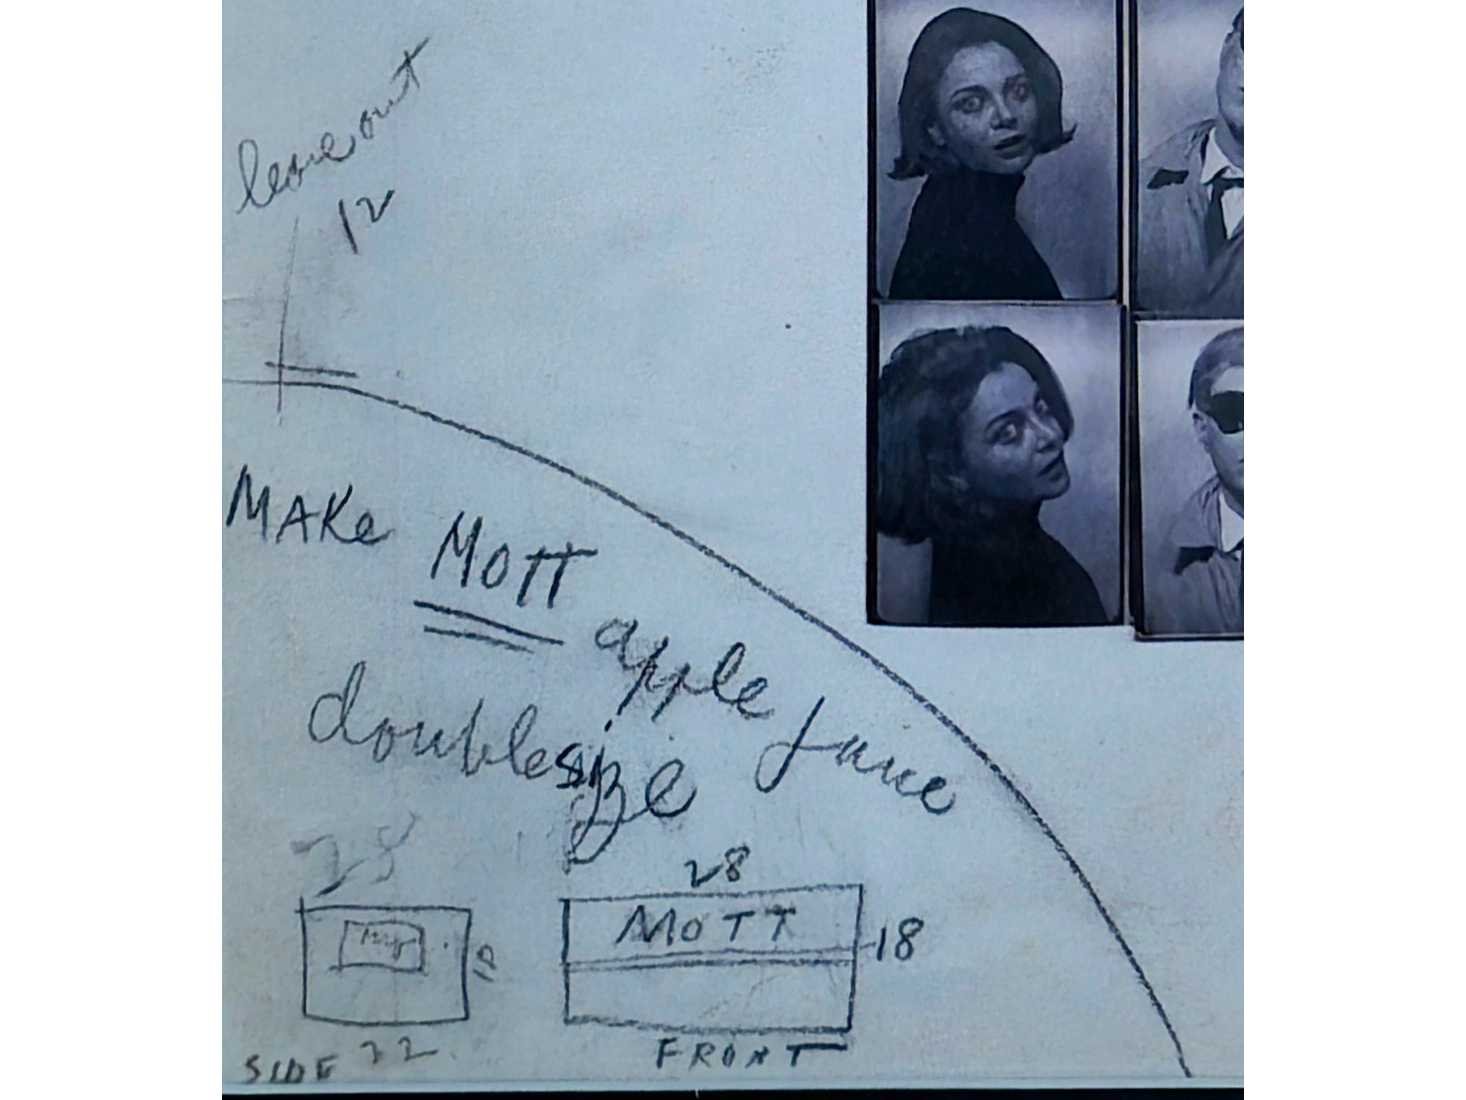 leave out
12
MAKe MOTT apple juice
double size
28
28
MOTT
18
SIDE 22
FRONT